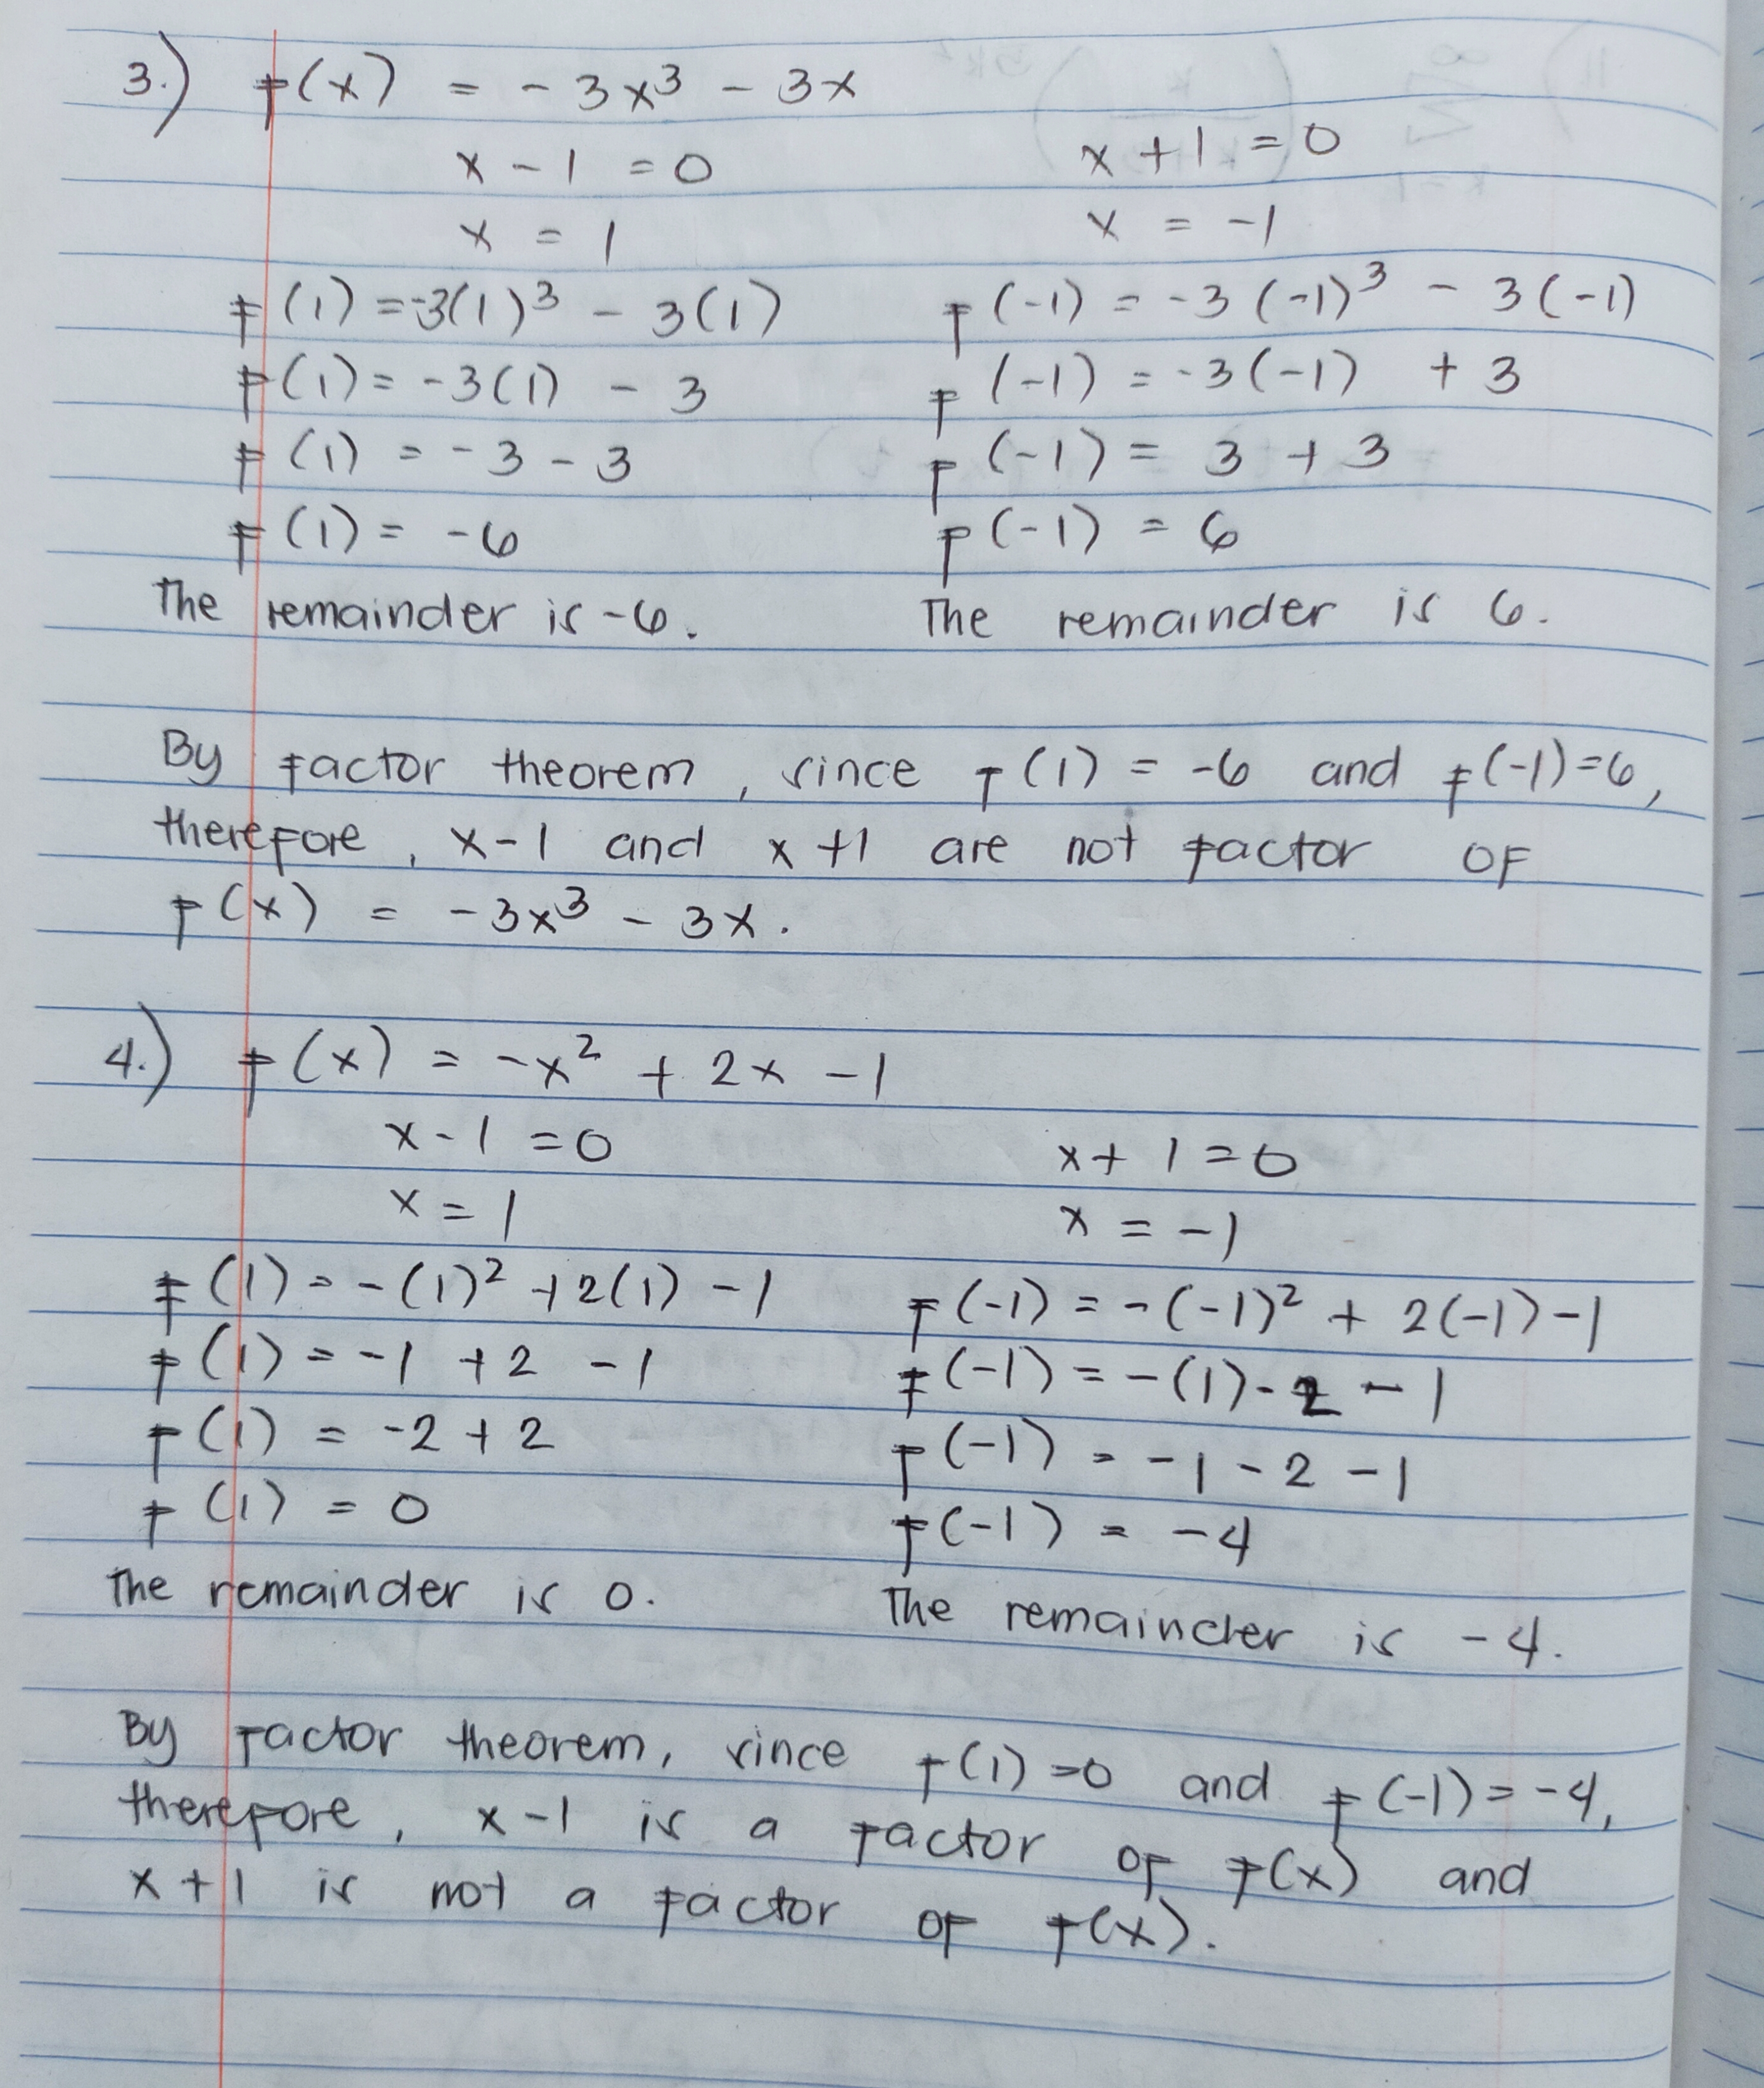 3.) f(x) = -3x³ - 3x
x - 1 = 0    x + 1 = 0
x = 1    x = -1
f(1) = -3(1)³ - 3(1)    f(-1) = -3(-1)³ - 3(-1)
f(1) = -3(1) - 3    f(-1) = -3(-1) + 3
f(1) = -3 - 3    f(-1) = 3 + 3
f(1) = -6    f(-1) = 6
The remainder is -6.    The remainder is 6.
By factor theorem, since f(1) = -6 and f(-1)=6,
therefore, x-1 and x+1 are not factor of
f(x) = -3x³ - 3x.
4.) f(x) = -x² + 2x - 1
x - 1 = 0    x + 1 = 0
x = 1    x = -1
f(1) = -(1)² + 2(1) - 1    f(-1) = -(-1)² + 2(-1) - 1
f(1) = -1 + 2 - 1    f(-1) = -(1) - 2 - 1
f(1) = -2 + 2    f(-1) = -1 - 2 - 1
f(1) = 0    f(-1) = -4
The remainder is 0.    The remainder is -4.
By factor theorem, since f(1) = 0 and f(-1) = -4,
therefore, x-1 is a factor of f(x) and
x+1 is not a factor of f(x).